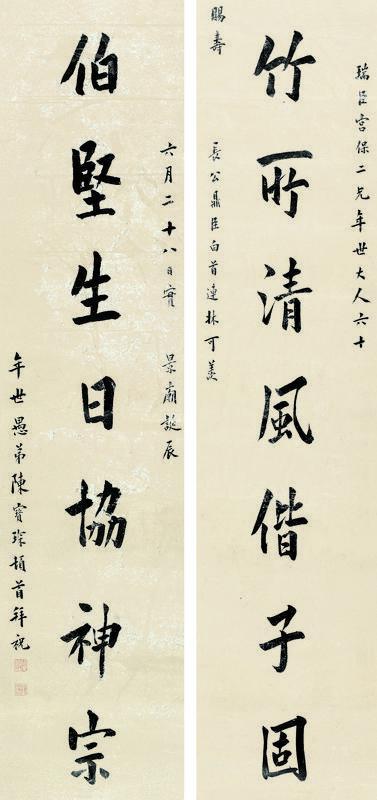 瑞臣宮保二兄年世大人六十
竹所清風偕子固
賜壽 長公鼎臣白首連牀可羨
六月二十八日實 景廟誕辰
伯堅生日協神宗
年世愚弟陳寶琛頓首拜祝